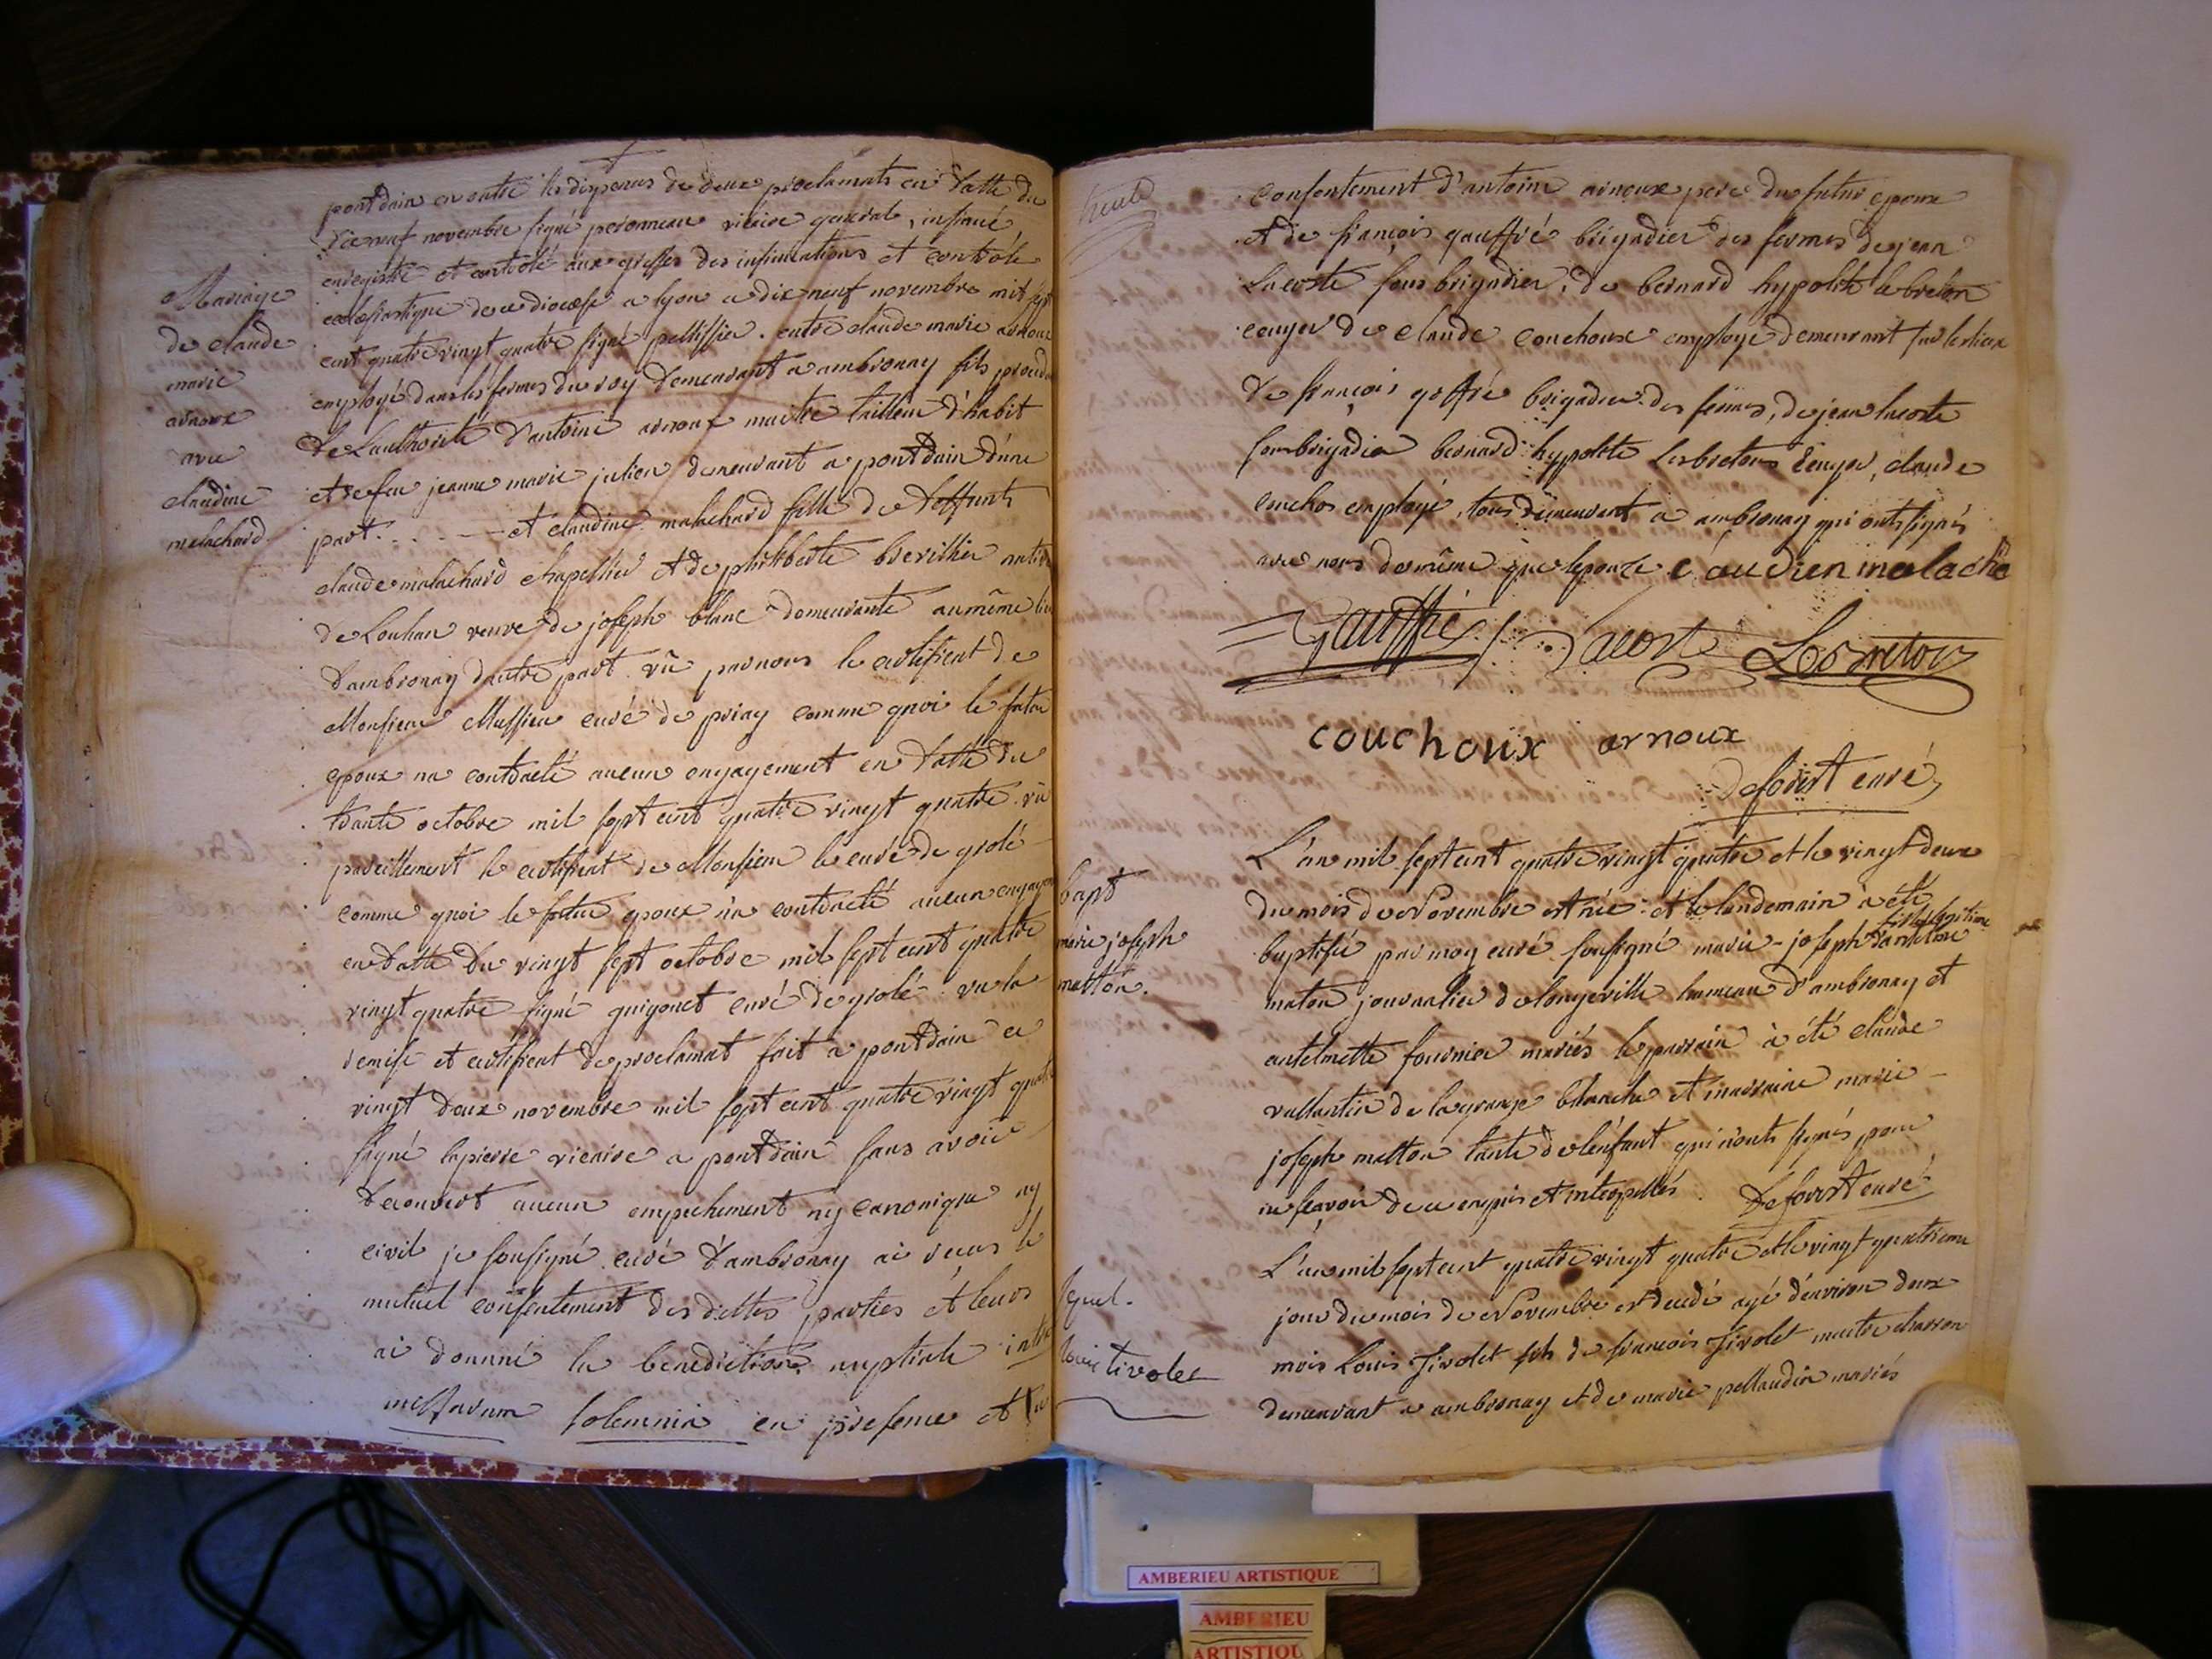 pontdain en outre les dispenses de deux proclamats en datte du
dix neuf novembre signé peronneau vicaire general, insinué,
enregistré et contrôlé aux greffes des insinuations et contrôle
ecclesiastique de ce diocese a lyon a dix neuf novembre mil sept
cent quatre vingt quatre signé pellissier. entre claude marie arnoux
employé dans les fermes du roy demeurant a ambronay fils procedant
de L'authorité d'antoine arnoux maitre tailleur d'habit
et de feu jeanne marie julien demeurant a pontdain d'une
part. - et claudine malachard fille de deffunts
claude malachard chapellier et de philiberte brevillier native
de Louhan veuve de joseph blanc demeurante au même lieu
d'ambronay d'autre part vû par nous le certificat de
Monsieur Massieu curé de priay comme quoi le futur
epoux na contracté aucun engagement en datte du
trante octobre mil sept cent quatre vingt quatre. vû
pareillement le certificat de Monsieur le curé de grolé
comme quoi le futur epoux n'a contracté aucun engagem
en datte du vingt sept octobre mil sept cent quatre
vingt quatre signé guigonet curé de grolé vu la
remise et certificat de proclamat fait a pontdain ce
vingt deux novembre mil sept cent quatre vingt quatre
signé lapierre vicaire a pontdain sans avoir
decouvert aucun empechement ny canonique ny
civil je sousigné curé d'ambronay ai recus le
mutuel consentement des dittes parties et leurs
ai donné la benediction nuptiale intra
missarum solemnia en presence et du
Mariage
de claude
marie
arnoux
avec
claudine
malachard
consentement d'antoine arnoux pere du futur epoux
et de françois gauffré brigadier des fermes de jean
Lacoste sous brigadier, de bernard hypolite le breton
ecuyer de claude couchoux employé demeurant sur les lieux
de françois goffré brigadier des fermes, de jean lacoste
sousbrigadier bernard hypolite Lebreton Ecuyer, claude
couchos employé, tous demeurant a ambronay qui ont signés
avec nous de même que lepouze
Gauffré Lacoste Lebreton
couchoux arnoux
Deforest curé
bapt
marie joseph
matton.
L'an mil sept cent quatre vingt quatre et le vingt deux
du mois de Novembre est née et le landemain à été
baptisée par moy curé sousigné marie-joseph fille legitime d'antelme
maton journalier de longeville hameau d'ambronay et
antelmette fournier mariés le parrain à été claude
vallantin de la grange blanche et marraine marie
joseph matton tante de lenfant qui n'ont signés pour
ne sçavoir de ce enquis et interpellés. Deforest curé
Louis tivolet
L'an mil sept cent quatre vingt quatre et le vingt quatrieme
jour du mois de Novembre est decedé agé d'environ deux
mois Louis Tivolet fils de françois Tivolet maitre charron
demeurant a ambronay et de marie pellaudin mariés
AMBERIEU ARTISTIQUE
AMBERIEU
ARTISTIQU